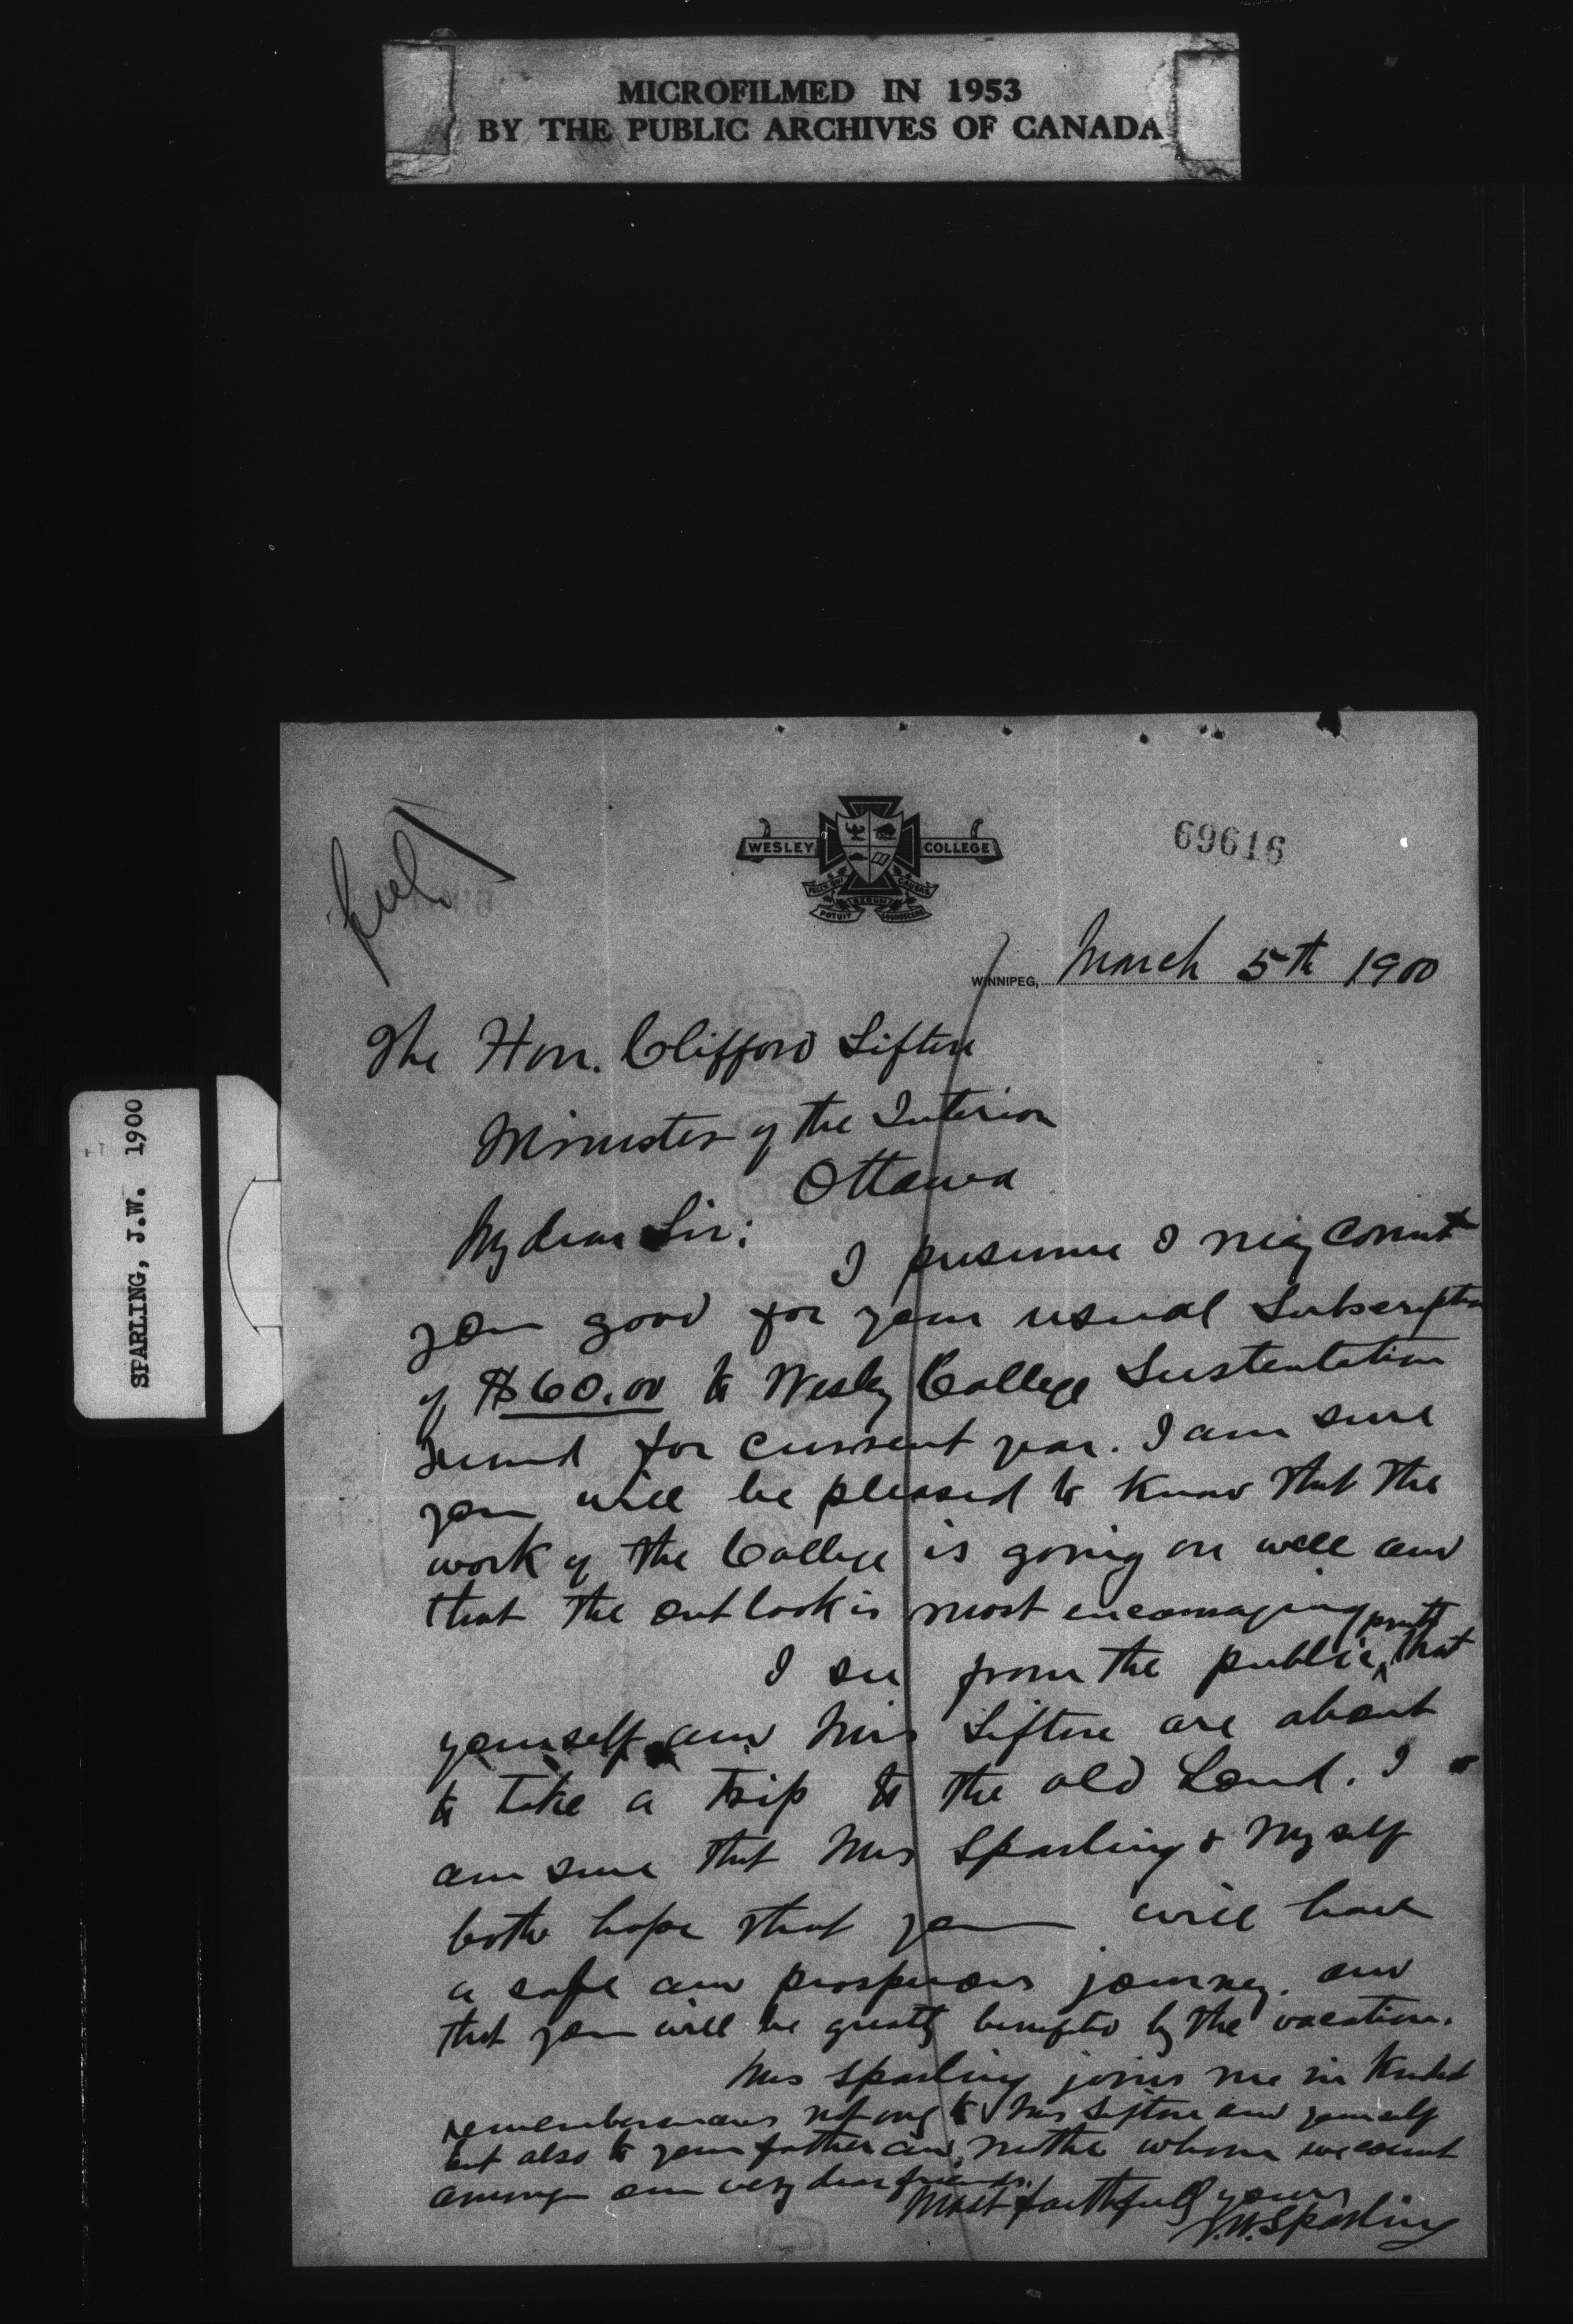 MICROFILMED IN 1953
BY THE PUBLIC ARCHIVES OF CANADA
SPARLING, J.W. 1900
WESLEY COLLEGE
FELIX QUI POTUIT RERUM COGNOSCERE CAUSAS
69616
WINNIPEG, March 5th 1900
The Hon. Clifford Sifton
Minister of the Interior
Ottawa
My dear Sir:
I presume I may count
you good for your usual Subscription
of $60.00 to Wesley College Sustentation
Fund for current year. I am sure
you will be pleased to know that the
work of the College is going on well and
that the outlook is most encouraging
I see from the public prints that
yourself and Mrs Sifton are about
to take a trip to the old Land. I
am sure that Mrs Sparling & Myself
both hope that you will have
a safe and prosperous journey. and
that you will be greatly benefited by the vacation.
Mrs Sparling joins me in kindest
remembrances not only to Mrs Sifton and yourself
but also to your father and mother whom we count
among our very dear friends.
Most faithfully yours
J.W. Sparling